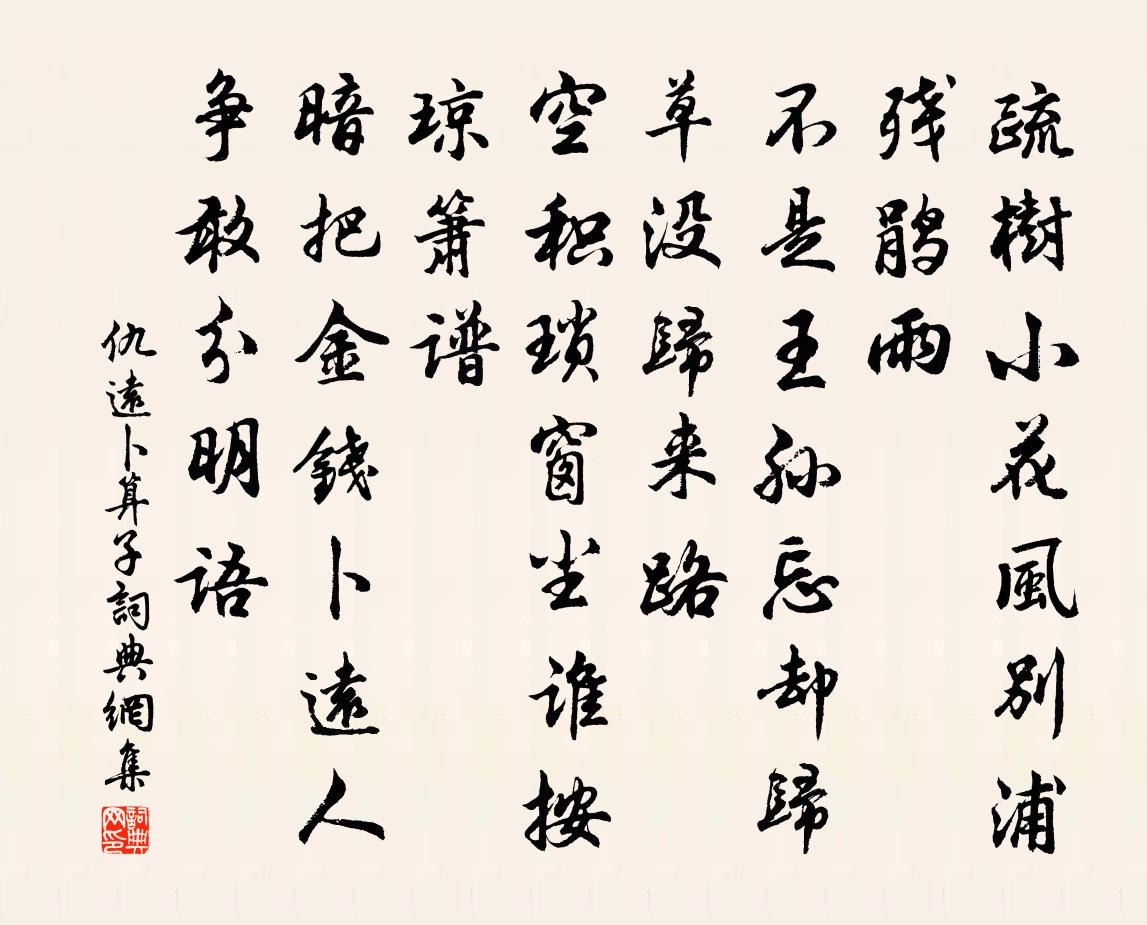 疏樹小花風別浦
残鹃雨
不是王孙忘却歸
草没歸来路
空积琐窗坐谁按
琼箫谱
暗把金錢卜遠人
争敢分明语
仇遠卜算子詞典網集
詞典网印